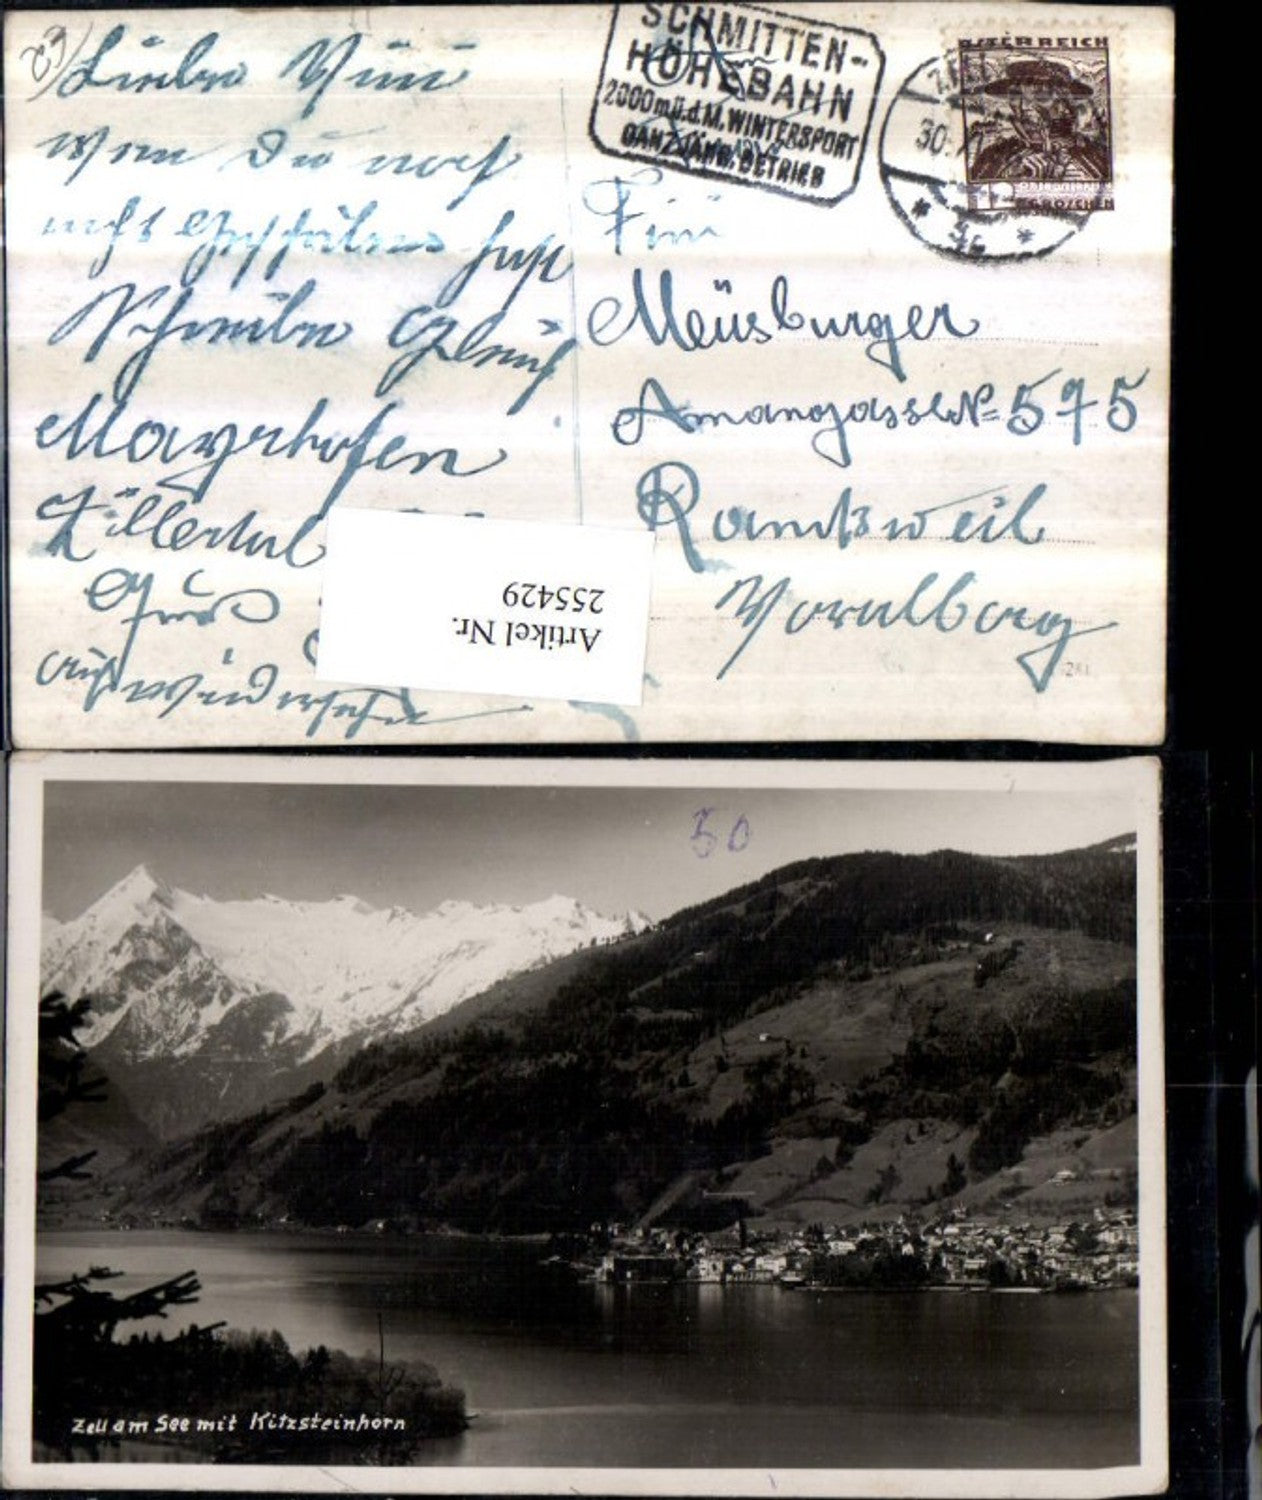 Liebe Vini
wen Du noch
nicht geschrieben hast
Schreibe Gleich
Mayrhofen
Zillertal
Gruß
auf wiedersehn
SCHMITTEN-
HÖHEBAHN
2000 m ü.d.M. WINTERSPORT
GANZJÄHR. BETRIEB
ÖSTERREICH
GROSCHEN
30.
Meüsburger
Amangasse № 575
Rankweil
Vorarlberg
281
Artikel Nr.
255429
50
Zell am See mit Kitzsteinhorn